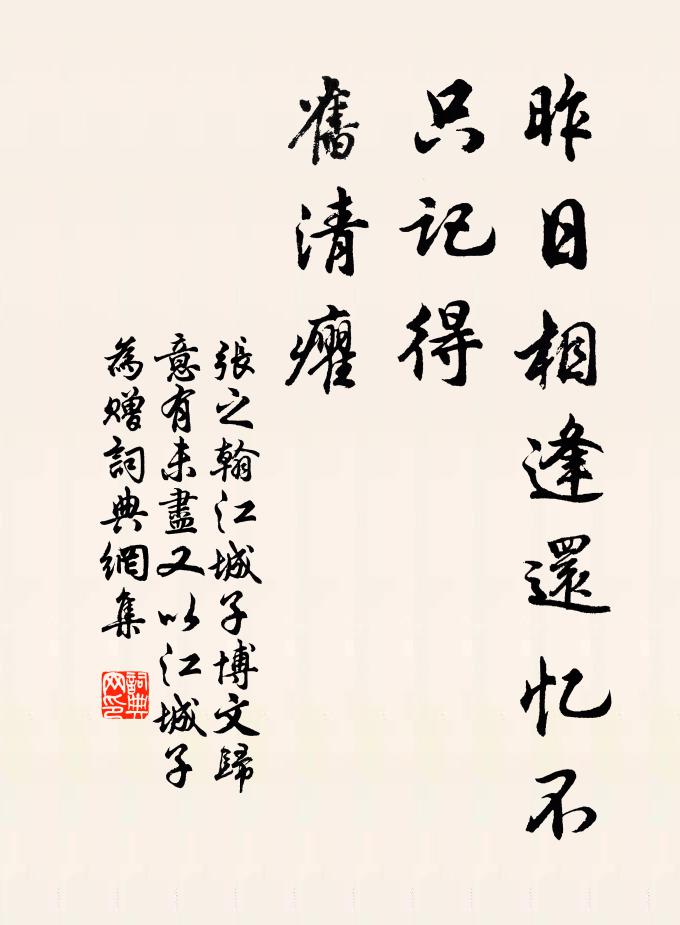 昨日相逢還忆不
只记得
舊清癯
張之翰江城子博文歸
意有未盡又以江城子
為贈詞典網集
詞典網印